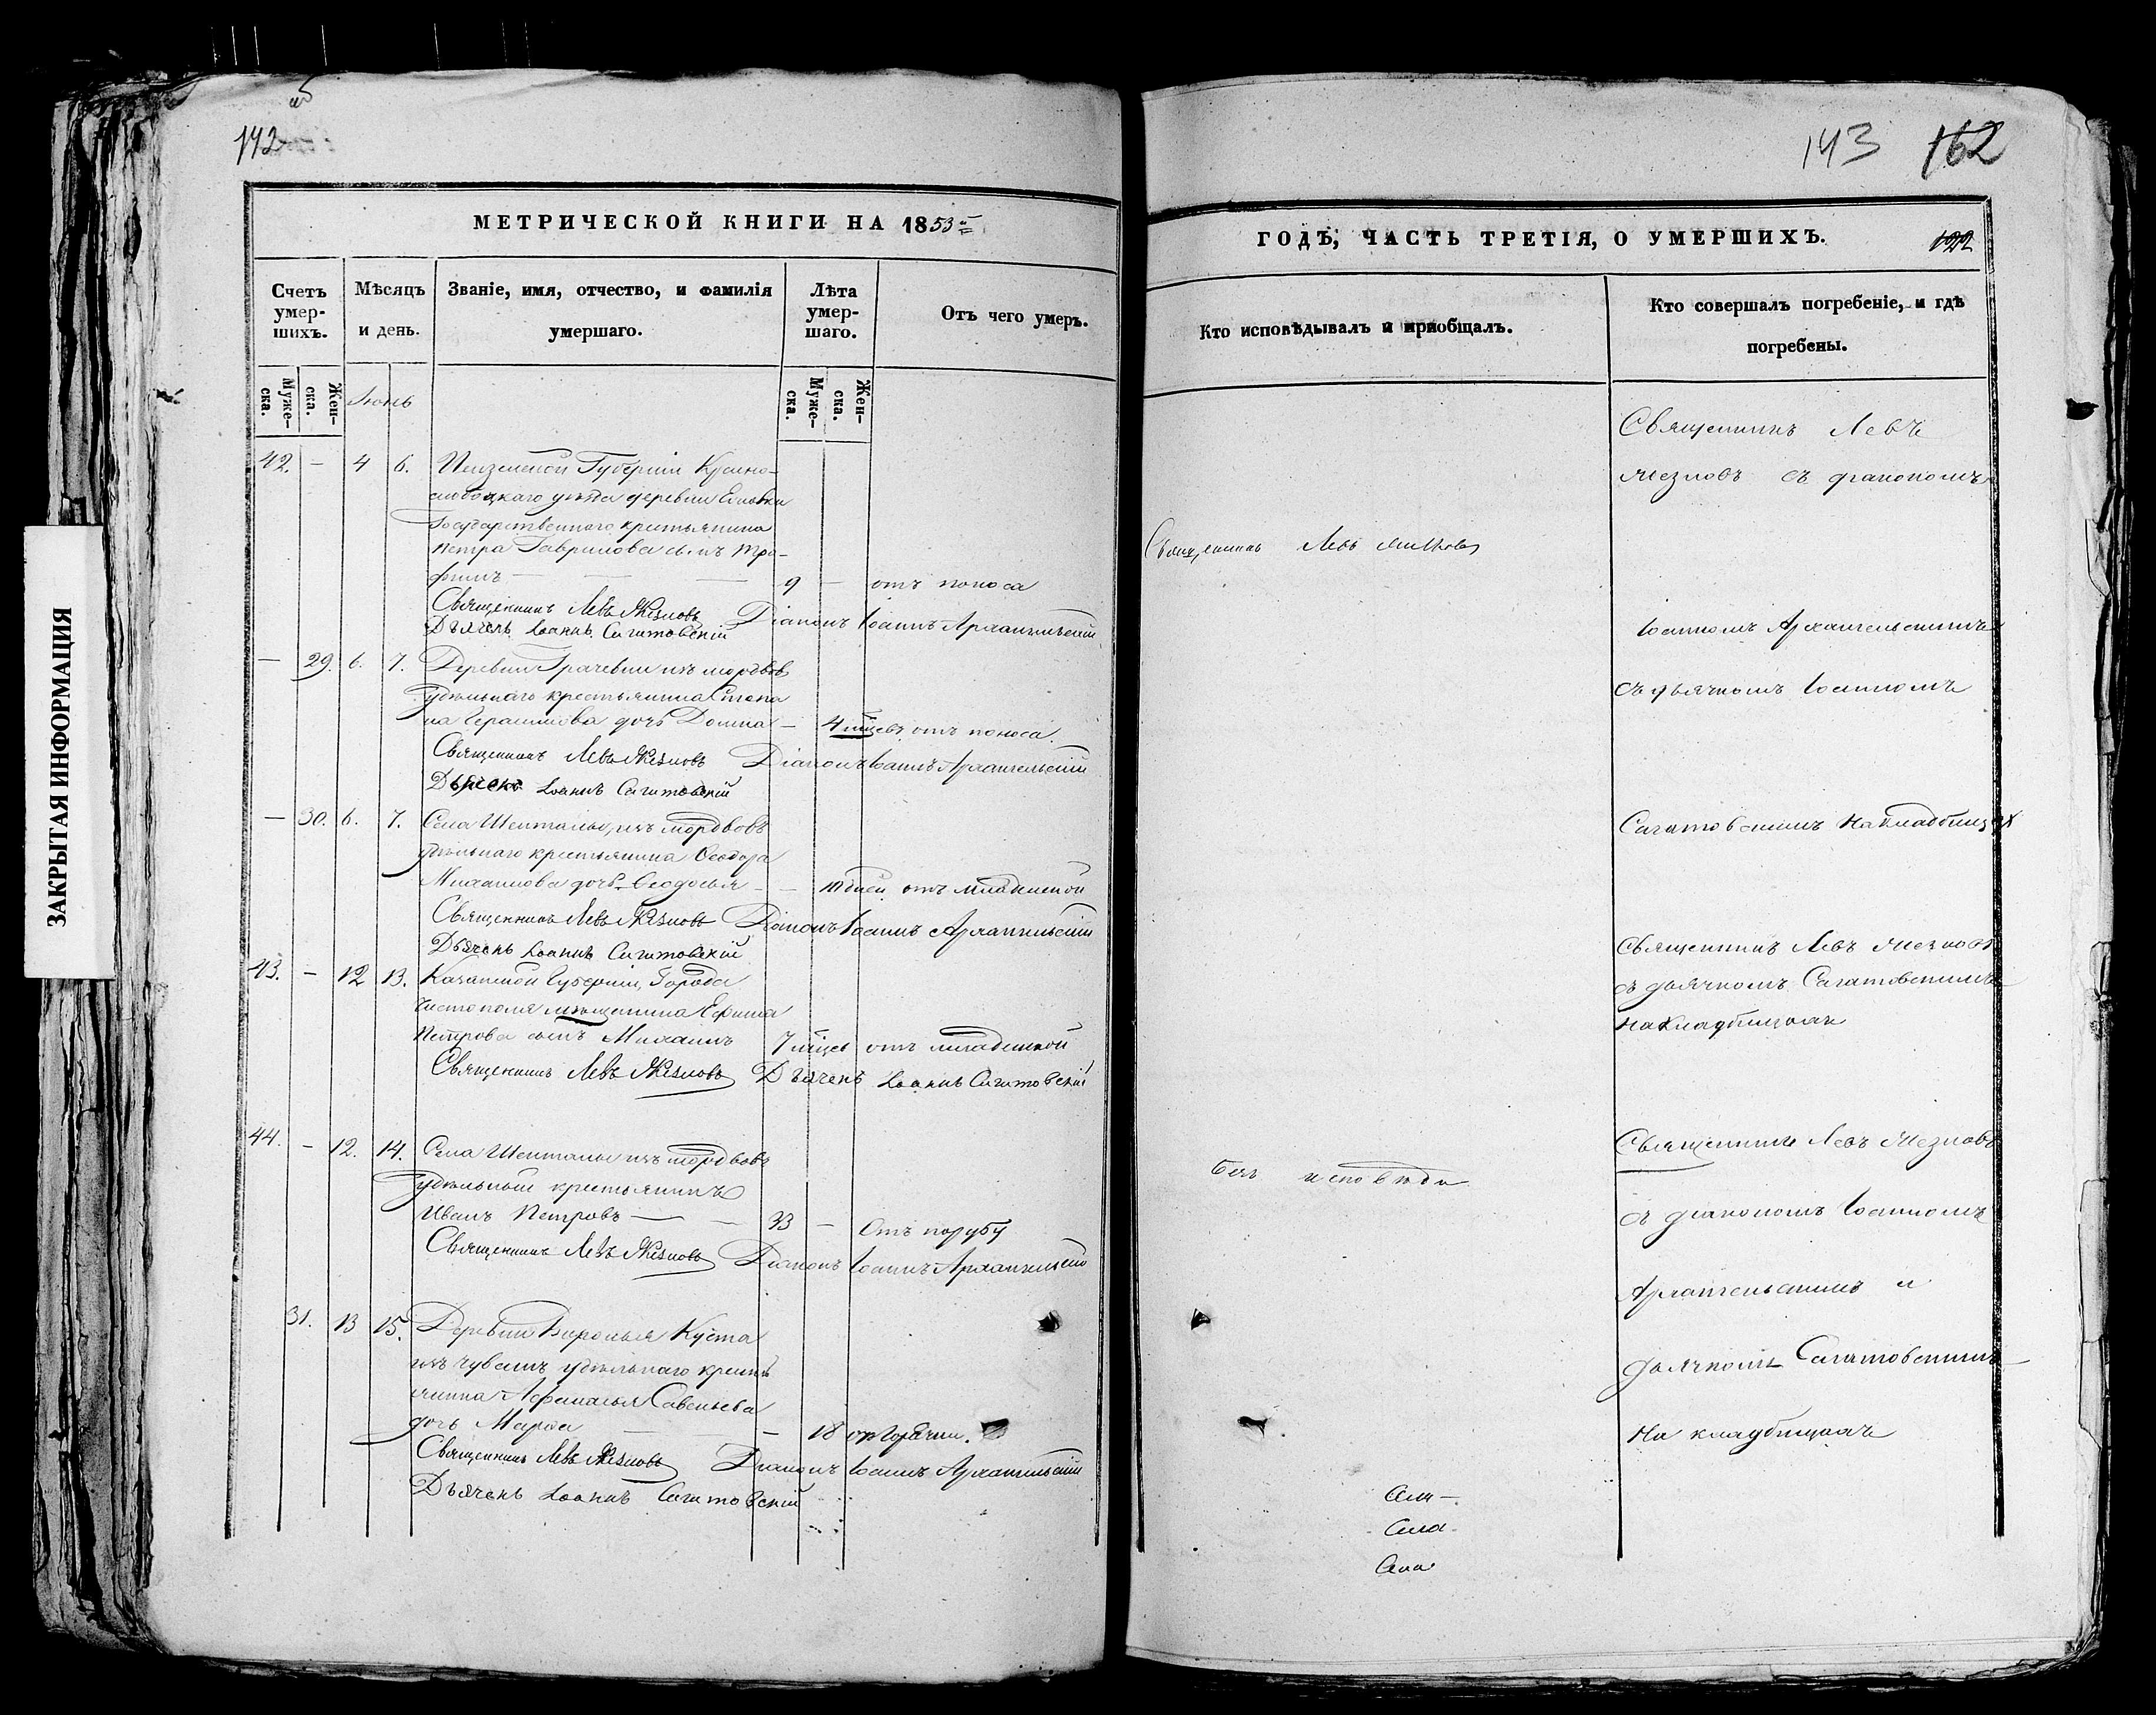 142
143 162
МЕТРИЧЕСКОЙ КНИГИ НА 1853й
ГОДЪ, ЧАСТЬ ТРЕТІЯ, О УМЕРШИХЪ.
122
Счетъ умер-шихъ.
Мѣсяцъ и день.
Званіе, имя, отчество, и фамилія умершаго.
Лѣта умер-шаго.
Отъ чего умеръ.
Кто исповѣдывалъ и пріобщалъ.
Кто совершалъ погребеніе, и гдѣ погребены.
Муже-ска. Жен-ска.
Муже-ска. Жен-ска.
Іюнь
42. – 4 6. Пензенской Губерніи Красно-
слободскаго уѣзда деревни
Государственнаго крестьянина
Петра Гаврилова сынъ Тро-
фимъ — 9 — отъ поноса
Священникъ Левъ Жезловъ Діаконъ Іоаннъ Архангельскій
Дьячекъ Іоаннъ Сагитовскій
— 29. 6. 7. Деревни Грачевки изъ мордвовъ
удѣльнаго крестьянина Степа
на Герасимова дочь Домна — 4 мѣсцевъ отъ поноса.
Священникъ Левъ Жезловъ Діаконъ Іоаннъ Архангельскій
Дьячекъ Іоаннъ Сагитовскій
— 30. 6. 7. Села Шенталы, изъ мордвовъ
удѣльнаго крестьянина Ѳеодора
Михаилова дочь Ѳеодосья — — 10 дней отъ младенской
Священникъ Левъ Жезловъ Діаконъ Іоаннъ Архангельскій
Дьячекъ Іоаннъ Сагитовскій
43. – 12 13. Казанской Губерніи, Города
Чистополя мѣщанина Ефима
Петрова сынъ Михаилъ 7 мѣсцев отъ младенской
Священникъ Левъ Жезловъ Дьячекъ Іоаннъ Сагитовскій
44. – 12. 14. Села Шенталы изъ мордвовъ
удѣльный крестьянинъ
Иванъ Петровъ — — 33 — Отъ порубу
Священникъ Левъ Жезловъ Діаконъ Іоаннъ Архангельскій
31. 13 15. Деревни Куста
изъ чувашъ удѣльнаго кресть
янина Афанасья Савельева
дочь Марѳа — 18 отъ горячки.
Священникъ Левъ Жезловъ Діаконъ Іоаннъ Архангельскій
Дьячекъ Іоаннъ Сагитовскій
Священникъ Левъ Жезловъ
Безъ исповѣди
Священникъ Левъ
Жезловъ съ діакономъ
Іоанномъ Архангельскимъ
съ дьячкомъ Іоанномъ
Сагитовскимъ на кладбищахъ
Священникъ Левъ Жезловъ
съ дьячкомъ Сагитовскимъ
на кладбищахъ
Священникъ Левъ Жезловъ
съ діакономъ Іоанномъ
Архангельскимъ и
дьячкомъ Сагитовскимъ
на кладбищахъ
Села
ЗАКРЫТАЯ ИНФОРМАЦИЯ